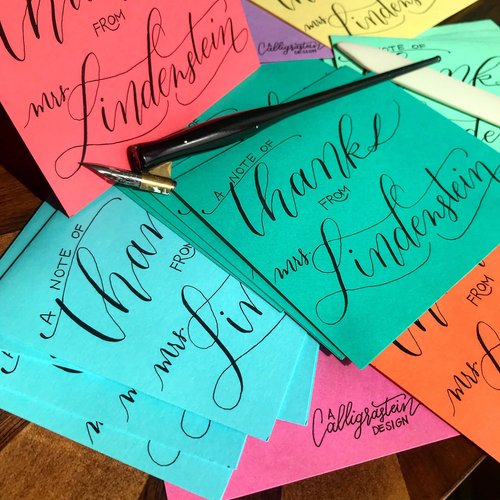 FROM
mrs. Lindenstein
Calligrastein
DESIGN
A NOTE OF
thanks
FROM
mrs. Lindenstein
A NOTE OF
FROM
mrs.
A
Calligrastein
DESIGN
mrs.